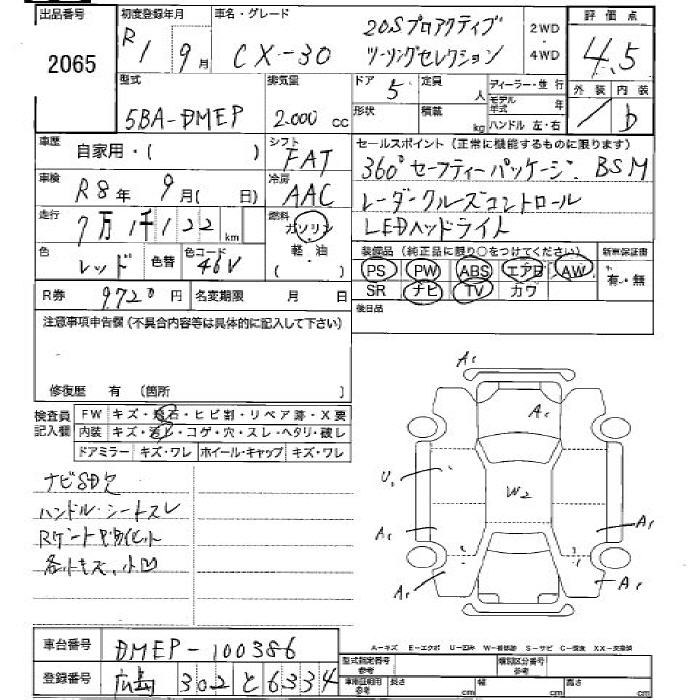 出品番号 初度登録年月 車名・グレード 評価点
2065 R1 9月 CX-30 20Sプロアクティブ 2WD 4.5
ツーリングセレクション 4WD
型式 排気量 ドア 定員 ディーラー・並行 外装 内装
5BA-DMEP 2.000cc 5 人 モデル年式 年 b
形状 積載 kg ハンドル 左・右
車歴 自家用・( ) シフト FAT セールスポイント(正常に機能するものに限ります)
車検 R8年 9月(日) 冷房 AAC 360°セーフティーパッケージ. BSM
レーダークルーズコントロール
走行 7万1千122km 燃料 ガソリン LEDヘッドライト
軽・油
( )
色 レッド 色替 色コード 46V 装備品(純正品に限り○をつけてください) 新車保証書
PS PW ABS エアB AW 有・無
R券 9720円 名変期限 月 日 SR ナビ TV カワ
注意事項申告欄(不具合内容等は具体的に記入して下さい) 後日品
修復歴 有 (箇所 )
検査員記入欄 FW キズ・飛石・ヒビ割・リペア跡・X要
内装 キズ・汚レ・コゲ・穴・スレ・ヘタリ・破レ
ドアミラー キズ・ワレ ホイール・キャップ キズ・ワレ
A1
A1
ナビSD欠 U1 W2
ハンドル・シートスレ
A1 A1
各トキズ、小凹 A1 A1
車台番号 DMEP-100386
A-キズ E-エクボ U-凹み W-補修跡 S-サビ C-腐食 XX-交換済
型式指定番号 参考 類別区分番号 参考
登録番号 広島 302 と 6334 車庫証明用 参考 長さ cm 幅 cm 高さ cm